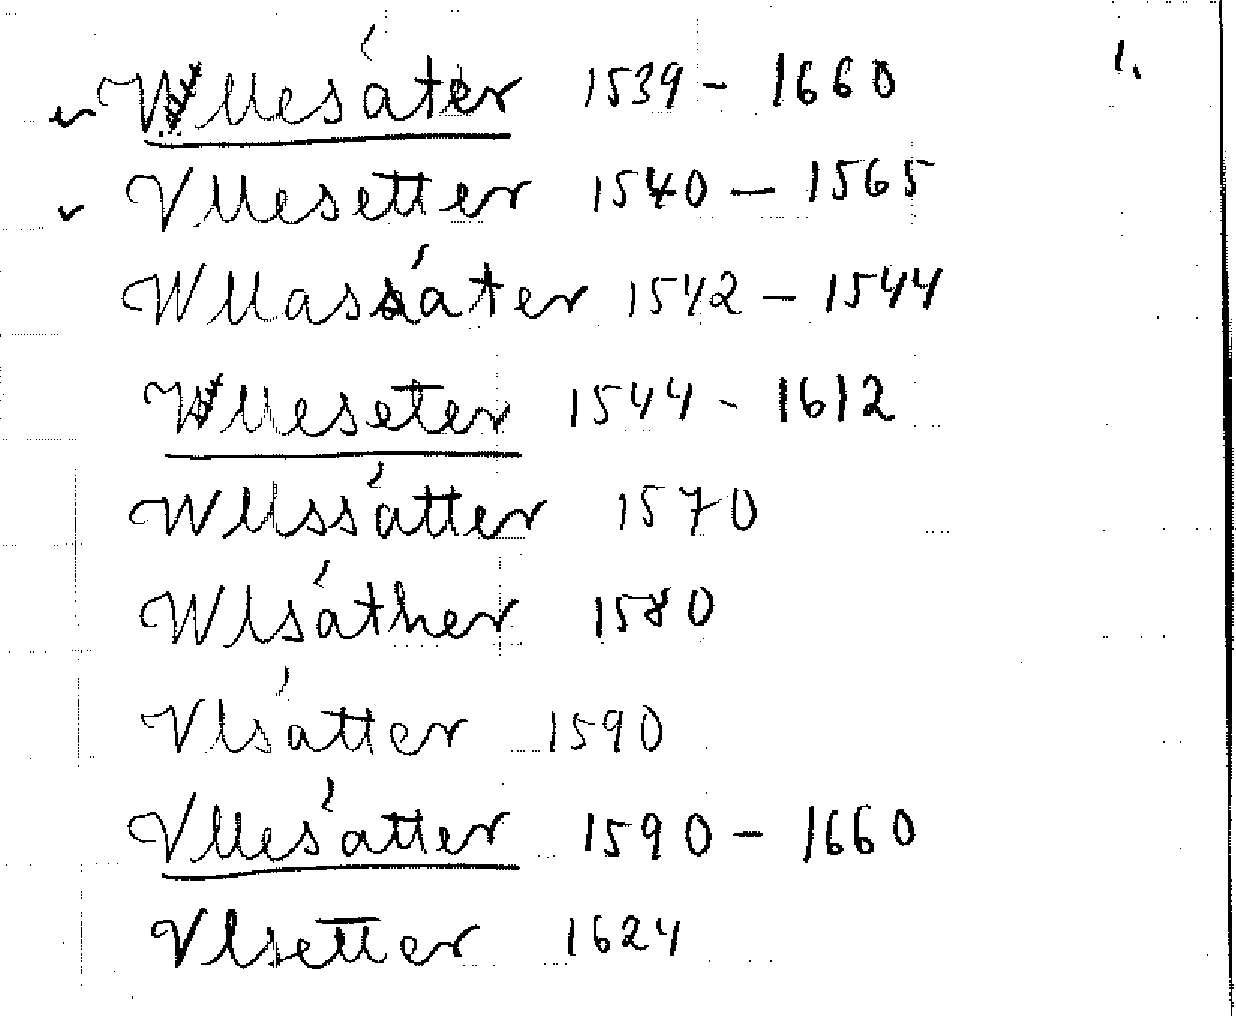 1.
Vllesáter 1539 - 1660
Vllesetter 1540 - 1565
Wllassáter 1542 - 1544
Vlleseter 1544 - 1612
Wllssátter 1570
Wlsáther 1580
Vlsátter 1590
Vllesátter 1590 - 1660
Vlsetter 1624